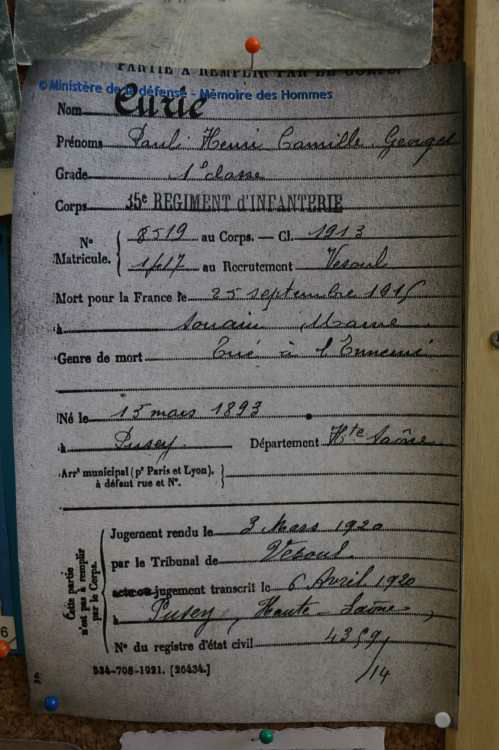 PARTIE A REMPLIR PAR LE CORPS.
© Ministère de la défense - Mémoire des Hommes
Nom Curie
Prénoms Paul Henri Camille Georges
Grade 1e classe
Corps 35e REGIMENT d'INFANTERIE
N° Matricule. { 8519 au Corps. — Cl. 1913
1417 au Recrutement Vesoul
Mort pour la France le 25 septembre 1915
à Souain Marne
Genre de mort Tué à l'Ennemi
Né le 15 mars 1893
à Pusey Département Hte Saône
Arrt municipal (pr Paris et Lyon),
à défaut rue et N°.
Cette partie n'est pas à remplir par le Corps.
Jugement rendu le 3 Mars 1920
par le Tribunal de Vesoul
acte ou jugement transcrit le 6 Avril 1920
à Pusey, Haute-Saône,
N° du registre d'état civil 4359/
534-708-1921. [26434.] /14
6